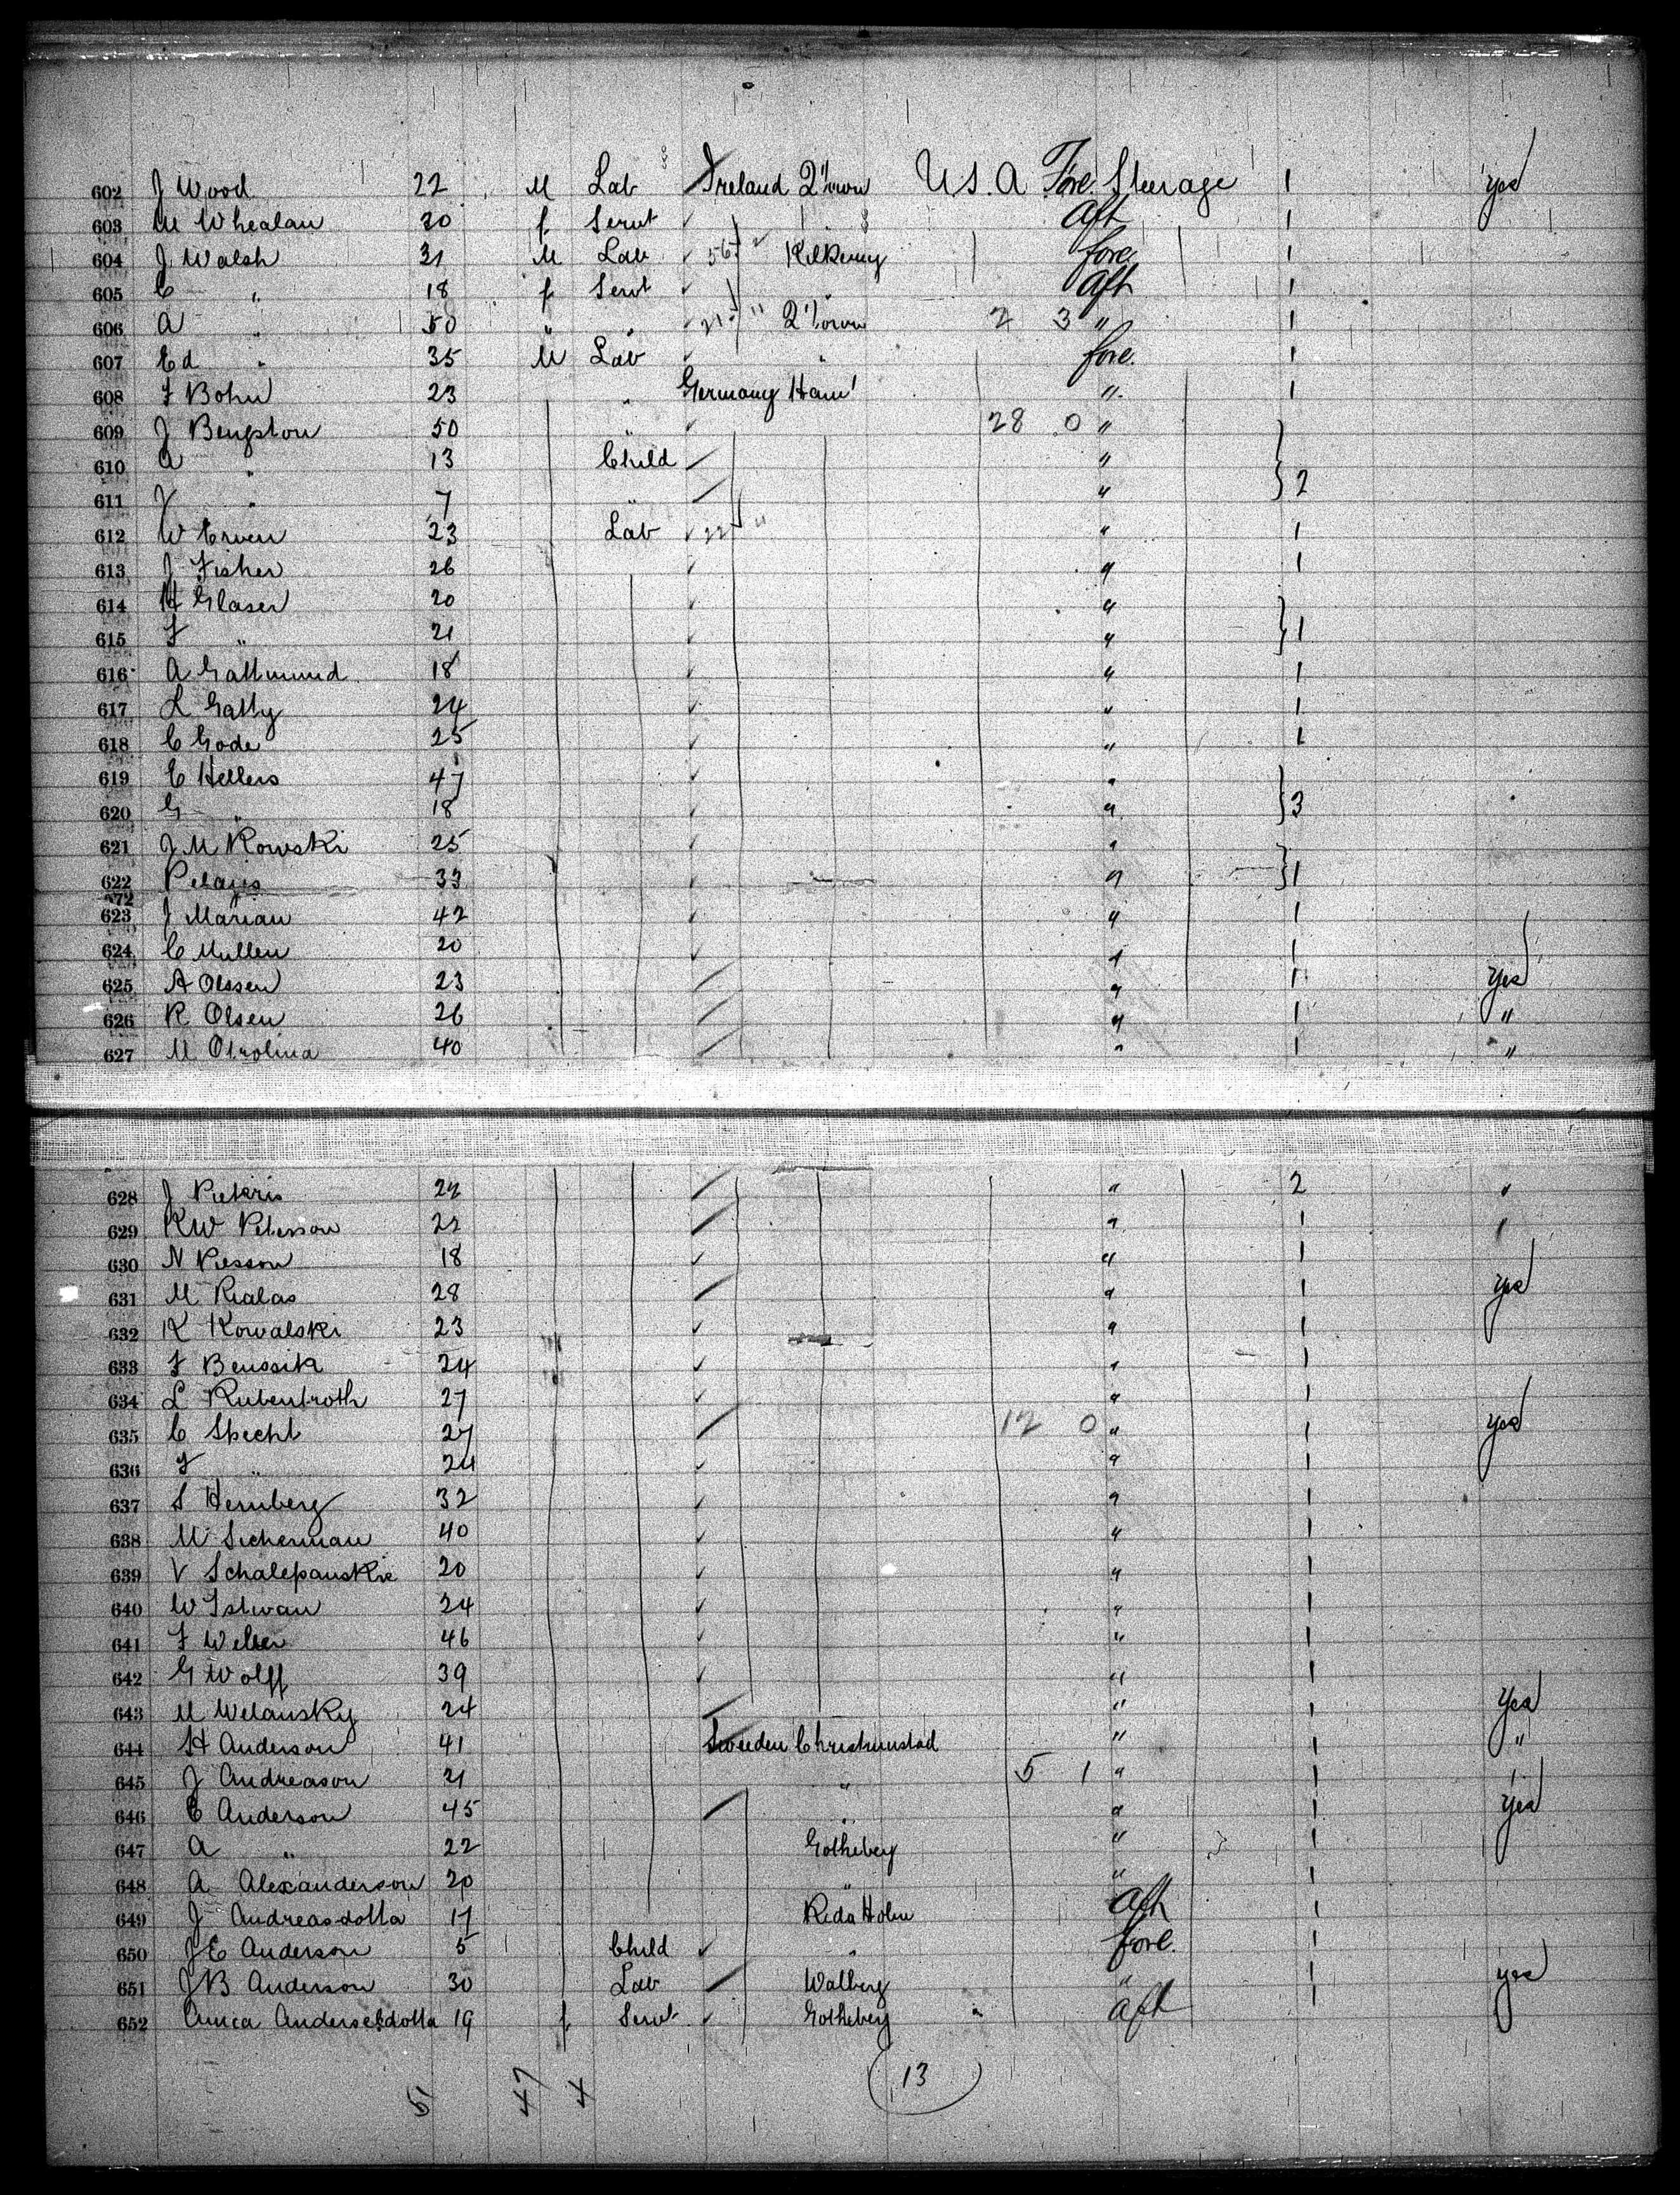 602 J Wood 22 M Lab Ireland Q'town U.S.A Fore Steerage 1 yes
603 M Whealan 20 f Servt " Aft 1
604 J Walsh 31 M Lab 56 " Kilkenny fore 1
605 C " 18 f Servt " Aft 1
606 A " 50 " " 21 " Q'town 2 3 " 1
607 Ed " 35 M Lab " fore. 1
608 F Bohn 23 " Germany Ham' " 1
609 J Bengston 50 " 28 0 "
610 A " 13 Child "
611 J " 7 " " 2
612 W Erven 23 Lab 22 " " 1
613 J Fisher 26 " 1
614 H Glaser 20 "
615 F " 21 " 1
616 A Gattmund 18 " 1
617 L Gatty 24 " 1
618 C Gode 25 " 1
619 E Hellers 47 "
620 G " 18 " 3
621 J M Kowski 25 "
622 Petajis 33 " 1
623 J Marian 42 " 1
624 C Mullen 20 " 1
625 A Olssen 23 " 1 yes
626 R Olsen 26 " 1 "
627 M Otrolina 40 " 1 "
628 J Pietkris 24 " 2 "
629 KW Petersson 22 " 1 "
630 N Piesson 18 " 1
631 M Rialas 28 " 1 yes
632 K Kowalski 23 " 1
633 F Benssik 24 " 1
634 L Rubentroth 27 " 1
635 C Specht 27 12 0 " 1 yes
636 F " 24 " 1
637 S Hernberg 32 " 1
638 M Sicherman 40 " 1
639 V Schalepanskie 20 " 1
640 W Istwan 24 " 1
641 F Weber 46 " 1
642 G Wolff 39 " 1
643 M Welansky 24 " 1 Yes
644 H Anderson 41 Sweden Christiunstad " 1 "
645 J Andreason 21 " 5 1 " 1 "
646 C Anderson 45 " " 1 yes
647 A " 22 Gotheberg " 1
648 A Alexanderson 20 " " 1
649 J Andreasdotta 17 Reda Holm Aft 1
650 JE Anderson 5 Child " fore. 1
651 JB Anderson 30 Lab Walberg " 1 yes
652 Anna Andersesdotta 19 f Servt Gotheberg " aft
51 47 4 13